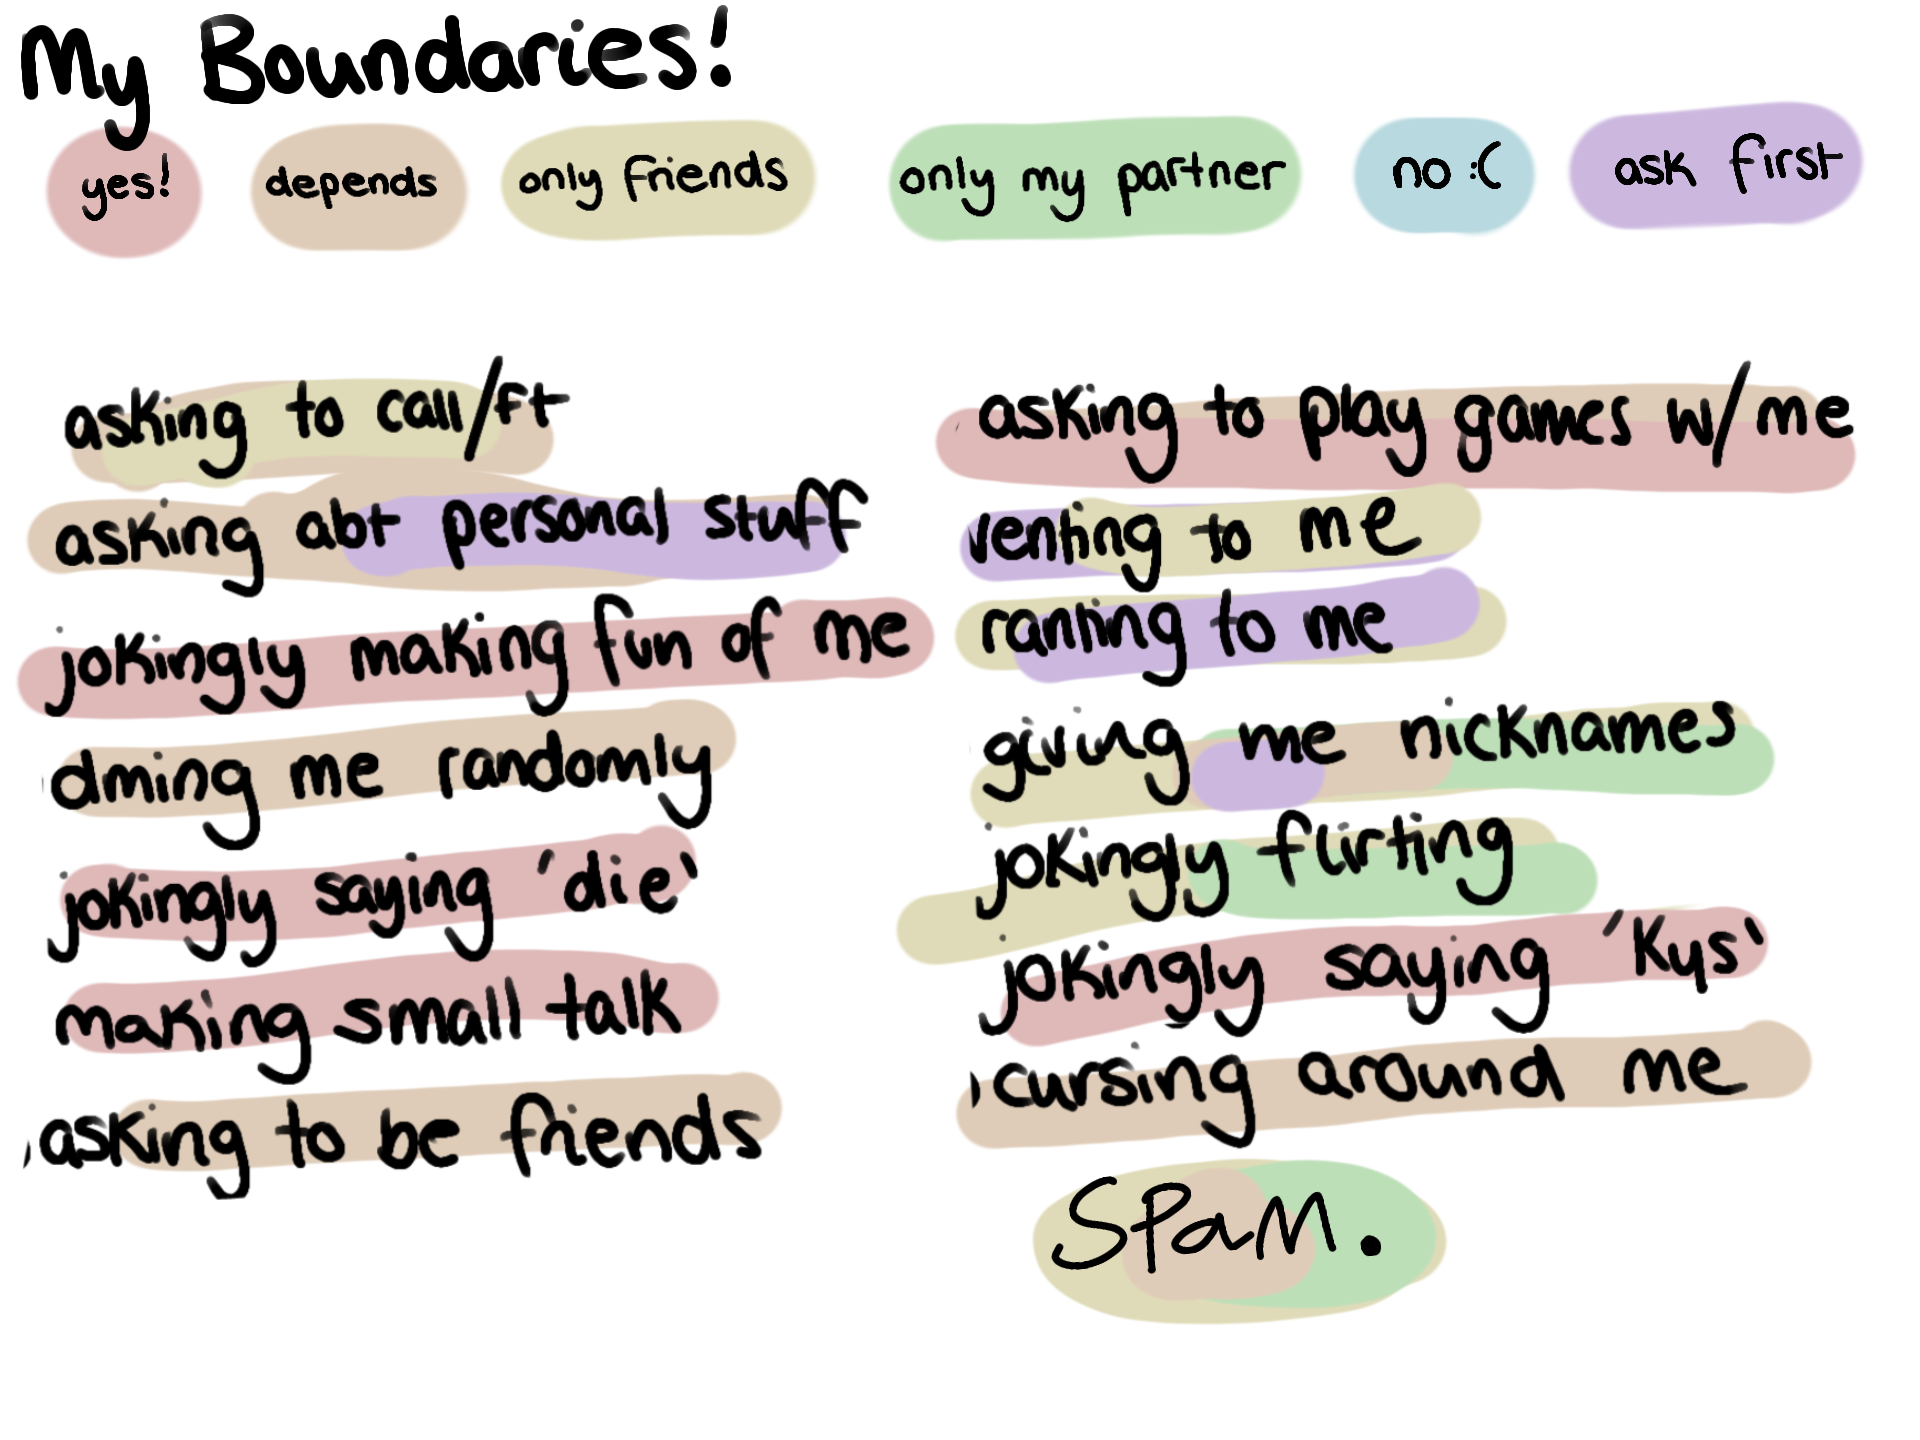 My Boundaries!
yes! depends only friends only my partner no :( ask first
asking to call/ft
asking abt personal stuff
jokingly making fun of me
dming me randomly
jokingly saying 'die'
making small talk
asking to be friends
asking to play games w/me
venting to me
ranting to me
giving me nicknames
jokingly flirting
jokingly saying 'kys'
cursing around me
SPaM.